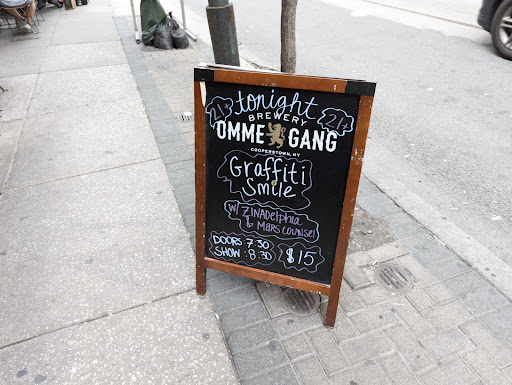 tonight
21+ BREWERY 21+
OMMEGANG
COOPERSTOWN, NY
Graffiti
Smile
w/ ZINADelphia
& MARS COUNSEL
DOORS 7:30
SHOW : 8:30
$15